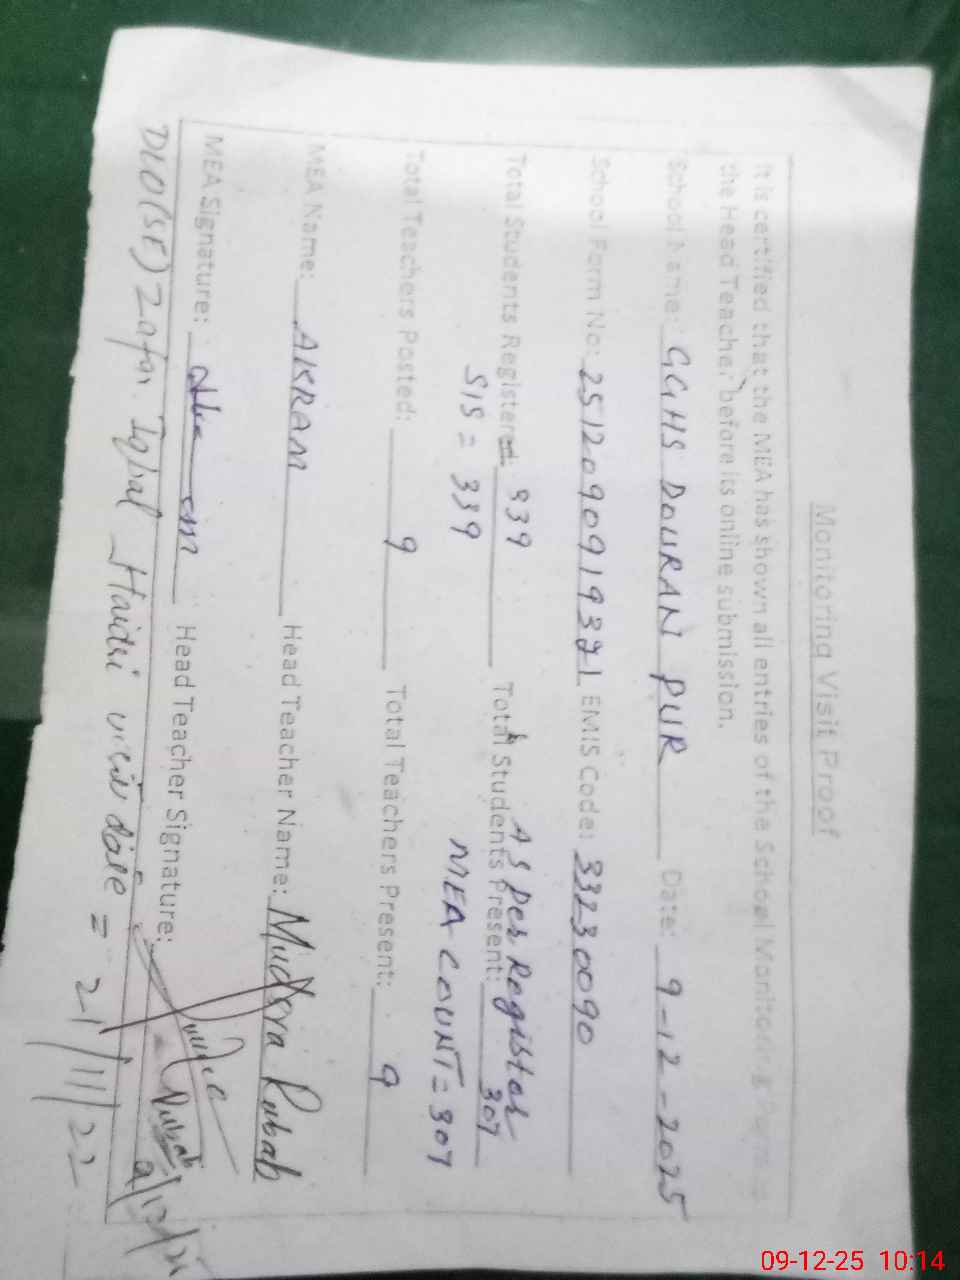 Monitoring Visit Proof
It is certified that the MEA has shown all entries of the School Monitoring
the Head Teacher before its online submission.
School Name: GGHS DOURAN PUR Date: 9-12-2025
School Form No: EMIS Code: 33230090
As Per Registar
Total Students Registered: 339 Total Students Present: 307
SIS = 339 MEA COUNT = 307
Total Teachers Posted: 9 Total Teachers Present: 9
MEA Name: AKRAM Head Teacher Name: Rubab
MEA Signature: Head Teacher Signature:
Rubab
DLO(SE) Zafar Iqbal Haidri visit date = 21/11/22
09-12-25 10:14